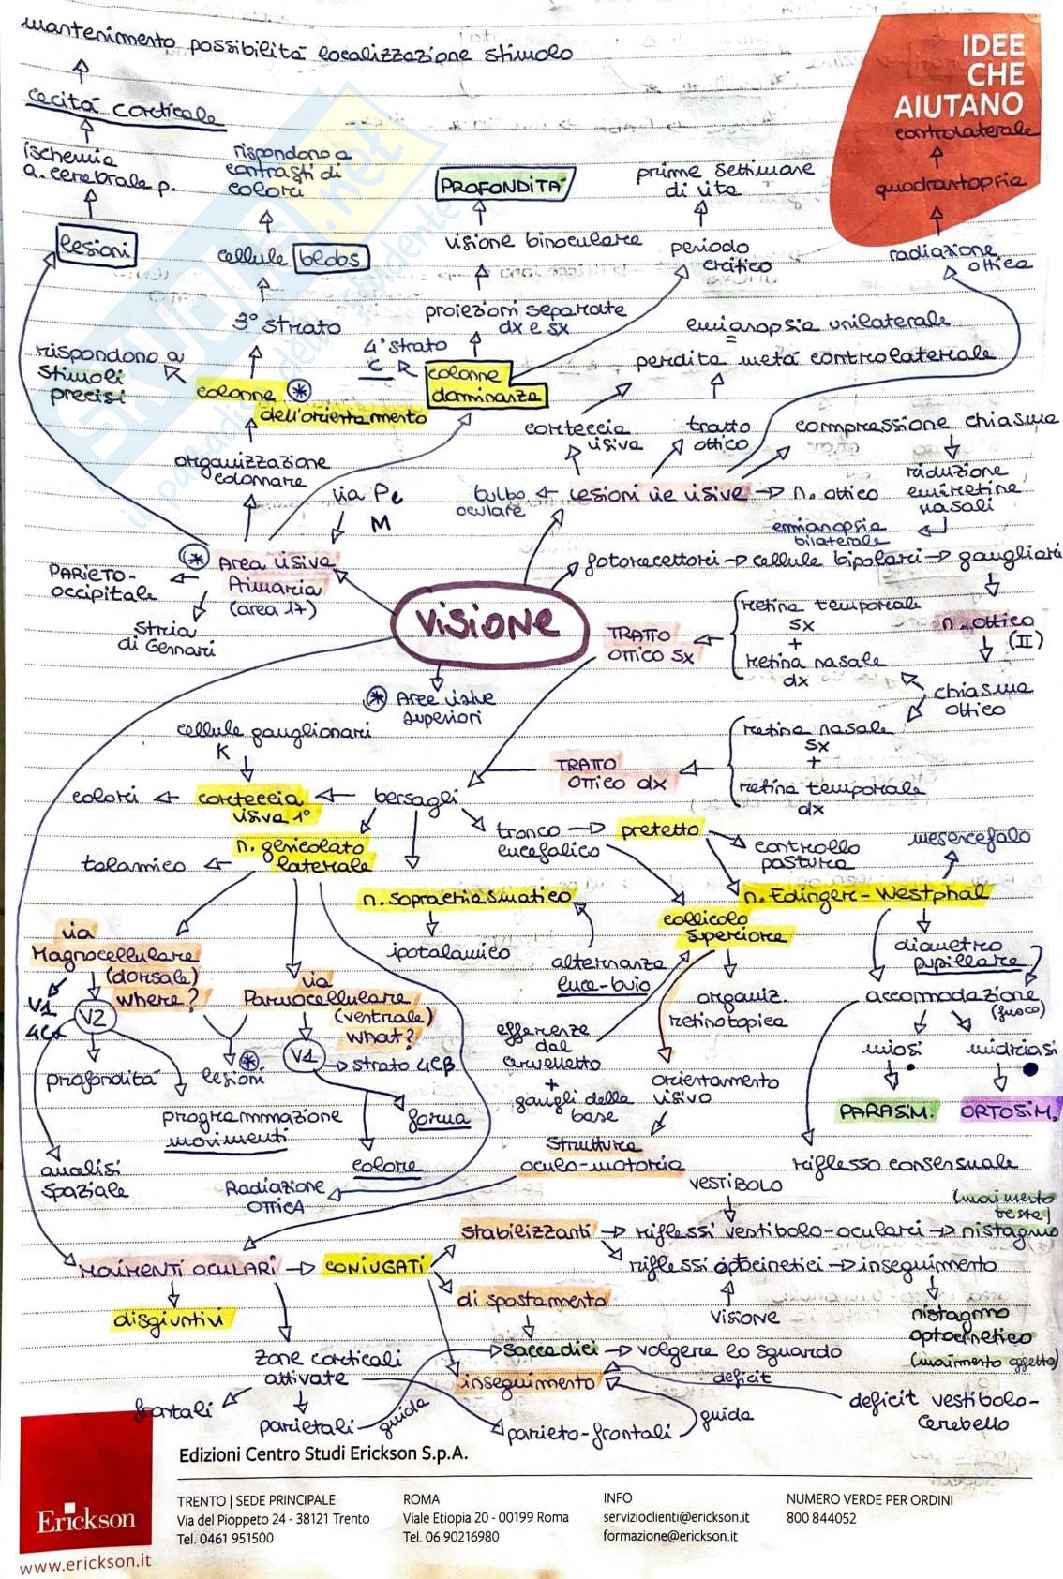 mantenimento possibilità localizzazione stimolo
IDEE
CHE
AIUTANO
cecità corticale
controlaterale
ischemia
a. cerebrale p.
rispondono a
contrasti di
colori
PROFONDITA'
prime settimane
di vita
quadrantopsia
lesioni
cellule blobs
visione binoculare
periodo
critico
radiazione
ottica
3° strato
proiezioni separate
dx e sx
emianopsia unilaterale
=
perdita metà controlaterale
rispondono a
stimoli
precisi
4° strato
C R
colonne
dominanza
colonne
dell'orientamento
corteccia
visiva
tratto
ottico
compressione chiasma
organizzazione
colonnare
riduzione
emiretine
nasali
via Pe
M
bulbo
oculare
lesioni vie visive
n. ottico
emianopsia
bilaterale
Area visiva
Primaria
(area 17)
fotorecettori → cellule bipolari → gangliari
PARIETO-
OCCIPITALE
Stria
di Gennari
VISIONE
TRATTO
OTTICO SX
retina temporale
sx
+
retina nasale
dx
n. ottico
(II)
Aree visive
superiori
chiasma
ottico
cellule ganglionari
K
retina nasale
sx
+
retina temporale
dx
TRATTO
OTTICO dx
colori ← corteccia
visiva 1°
← bersagli
tronco
encefalico
→ pretetto
controllo
pastura
mesencefalo
talamico ←
n. genicolato
laterale
n. soprachiasmatico
n. Edinger-Westphal
collicolo
superiore
via
Magnocellulare
(dorsale)
where?
ipotalamico
alternanza
luce-buio
diametro
pupillare
via
Parvocellulare
(ventrale)
what?
organiz.
retinotopica
accomodazione
(fuoco)
V1
4Cα
V2
efferenze
dal
cervelletto
+
gangli della
base
V1
→ strato 4Cβ
miosi
midriasi
profondità
lesioni
orientamento
visivo
programmazione
movimenti
forma
PARASIM.
ORTOSIM.
Struttura
oculo-motoria
analisi
spaziale
colore
riflesso consensuale
Radiazione
OTTICA
VESTIBOLO
(movimento
testa)
stabilizzanti → riflessi vestibolo-oculari → nistagmo
MOVIMENTI OCULARI → CONIUGATI
riflessi optocinetici → inseguimento
di spostamento
disgiuntivi
visione
nistagmo
optocinetico
(movimento oggetto)
zone corticali
attivate
saccadici → volgere lo sguardo
inseguimento
deficit
frontali
parietali
guida
parieto-frontali
guida
deficit vestibolo-
cerebello
Edizioni Centro Studi Erickson S.p.A.
TRENTO | SEDE PRINCIPALE
Via del Pioppeto 24 - 38121 Trento
Tel. 0461 951500
ROMA
Viale Etiopia 20 - 00199 Roma
Tel. 06 90216980
INFO
servizioclienti@erickson.it
formazione@erickson.it
NUMERO VERDE PER ORDINI
800 844052
Erickson
www.erickson.it